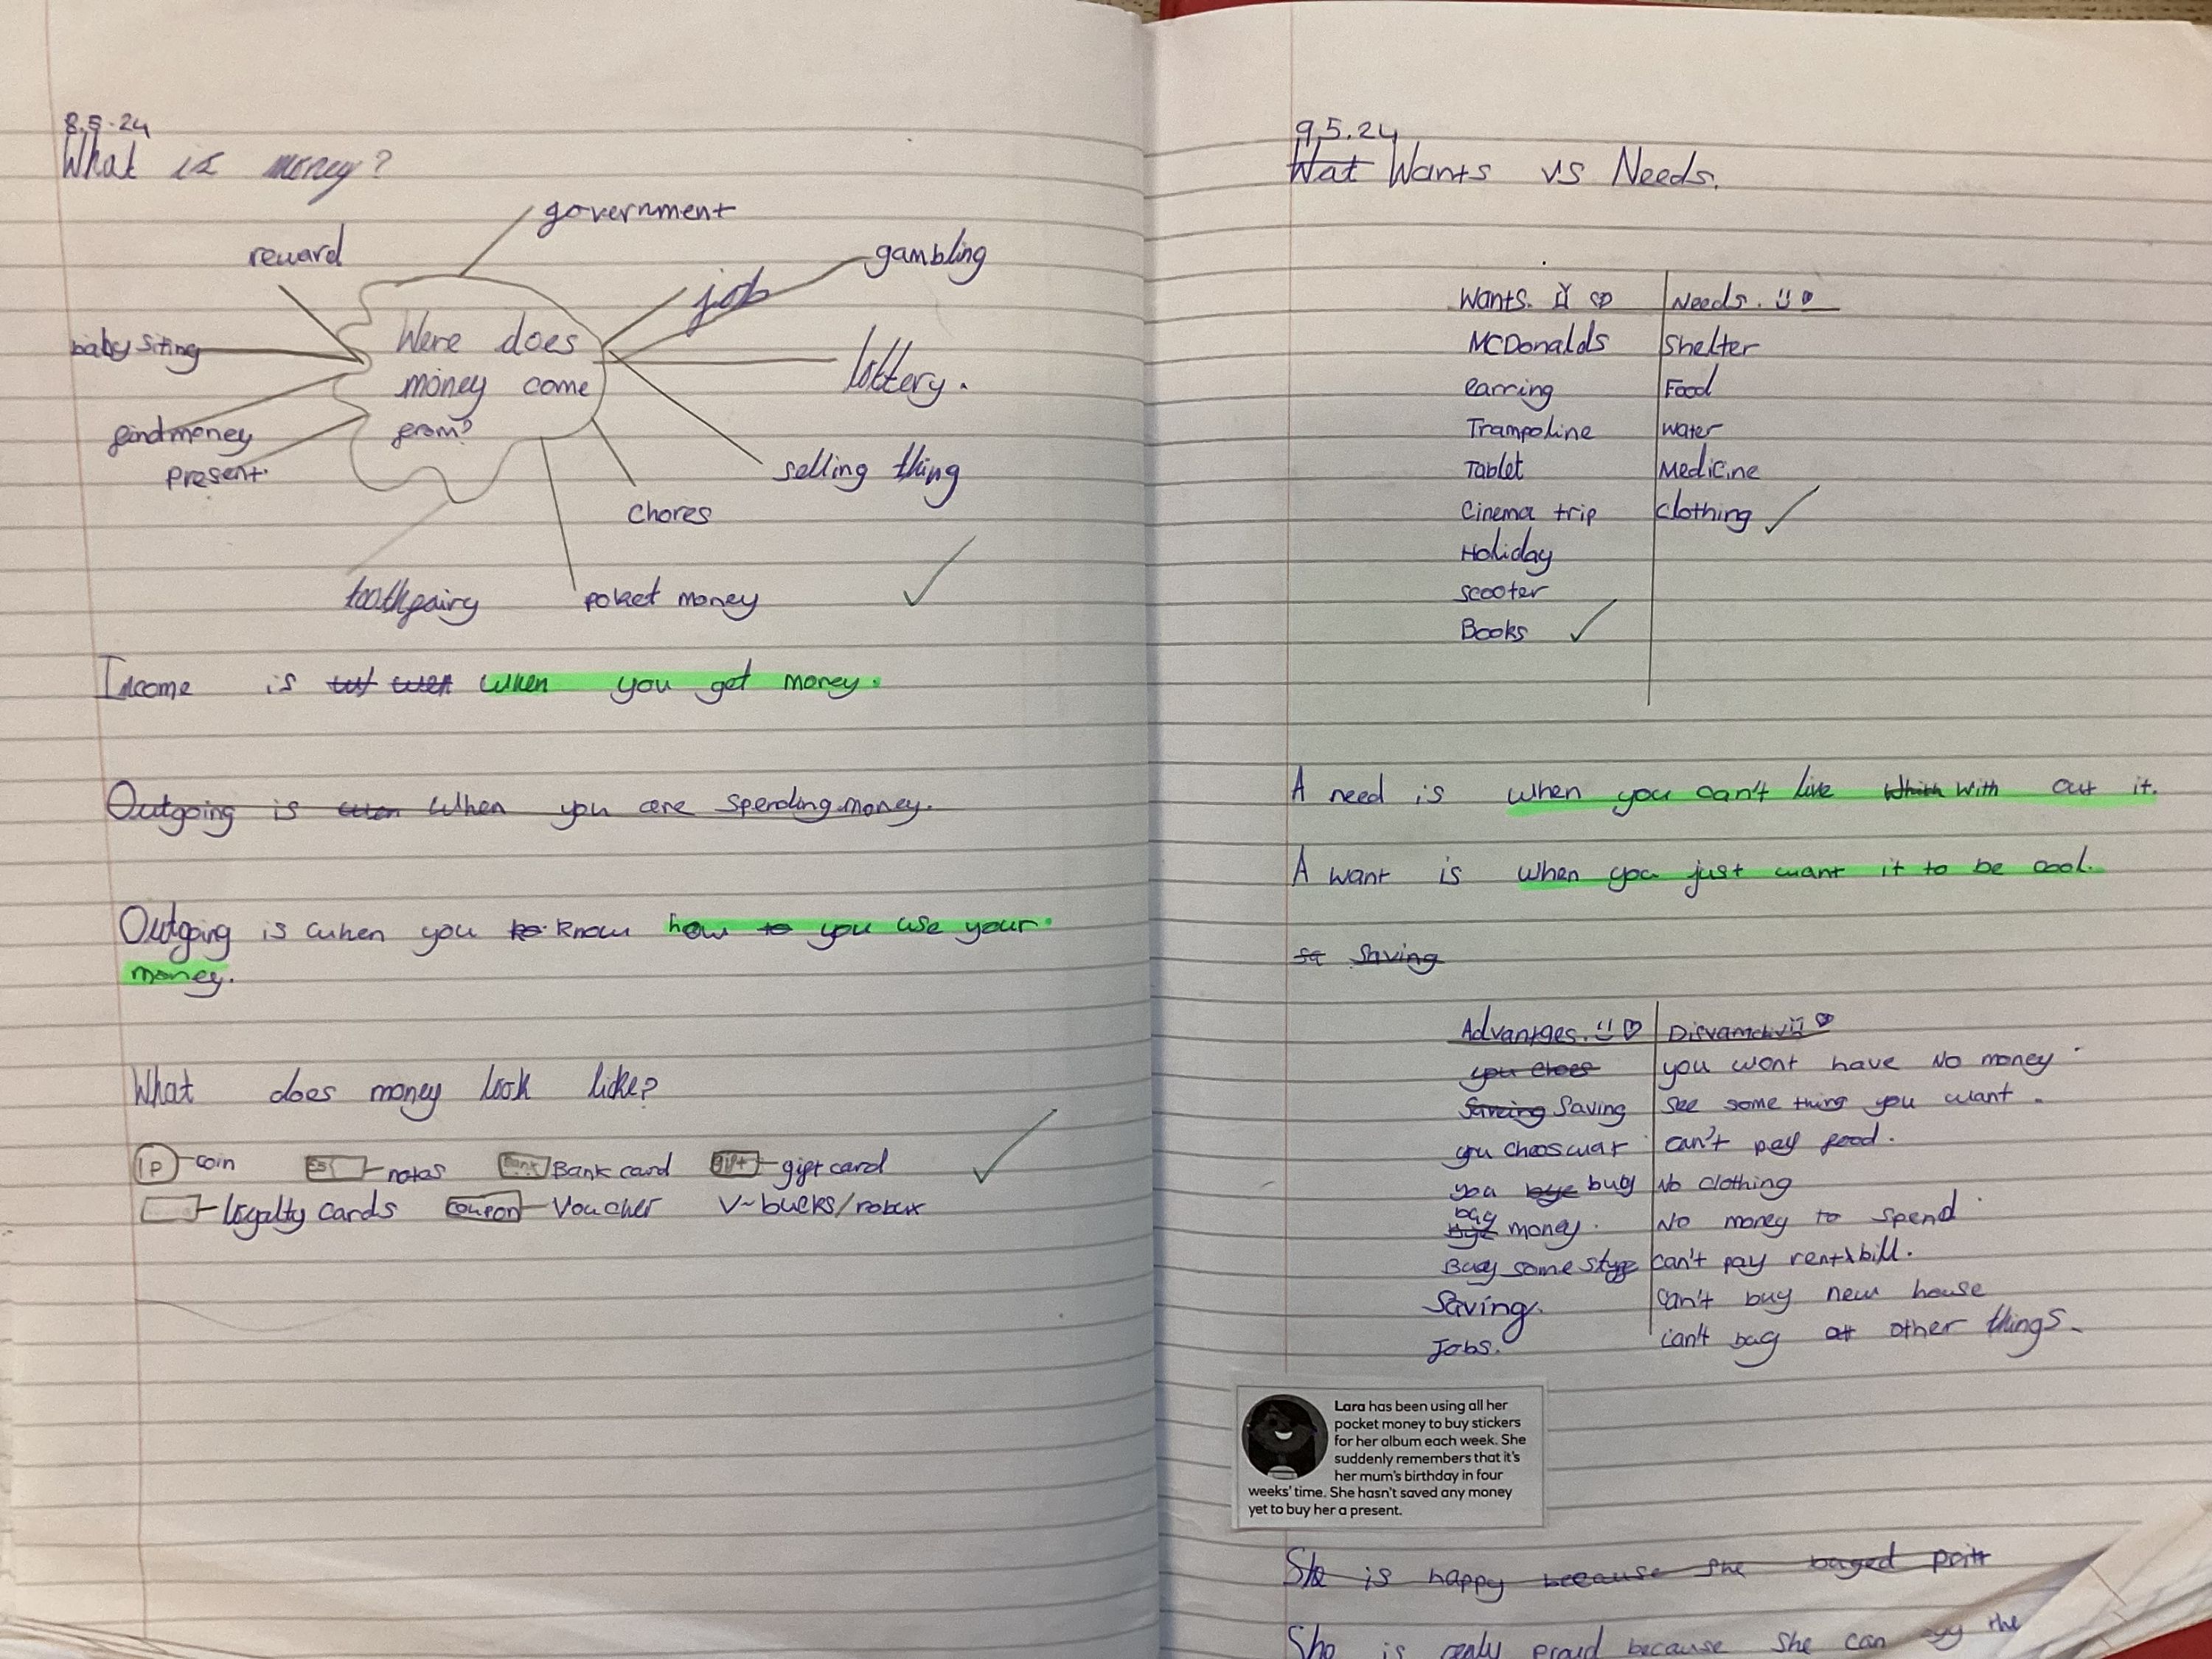 8.5.24
What is money?
government
reward
gambling
job
Were does
money come
from?
baby siting
lottery.
find money
present.
selling thing
chores
toothfairy
poket money
Income is when you get money.
Outgoing is when you are spending money.
Outgoing is when you know how to you use your
money.
What does money look like?
1P coin £5 notes Bank Bank card gift gift card
loyalty cards coupon Voucher V-bucks/robux
9.5.24
Wat Wants vs Needs.
Wants. Needs.
McDonalds Shelter
earring Food
Trampoline water
Tablet Medicine
Cinema trip clothing
Holiday
scooter
Books
A need is when you can't live which with out it.
A want is when you just want it to be cool.
sa saving
Advantges.
you choes you wont have No money
Saveing Saving see some thing you want.
you chooswat can't pay food.
you bye buy No clothing
bye bay money. No money to spend
Buy some stuff can't pay rent&bill.
Saving. can't buy new house
Jobs. can't bay ot other things.
Lara has been using all her
pocket money to buy stickers
for her album each week. She
suddenly remembers that it's
her mum's birthday in four
weeks' time. She hasn't saved any money
yet to buy her a present.
She is happy because she bayed
She is realy proud because she can the